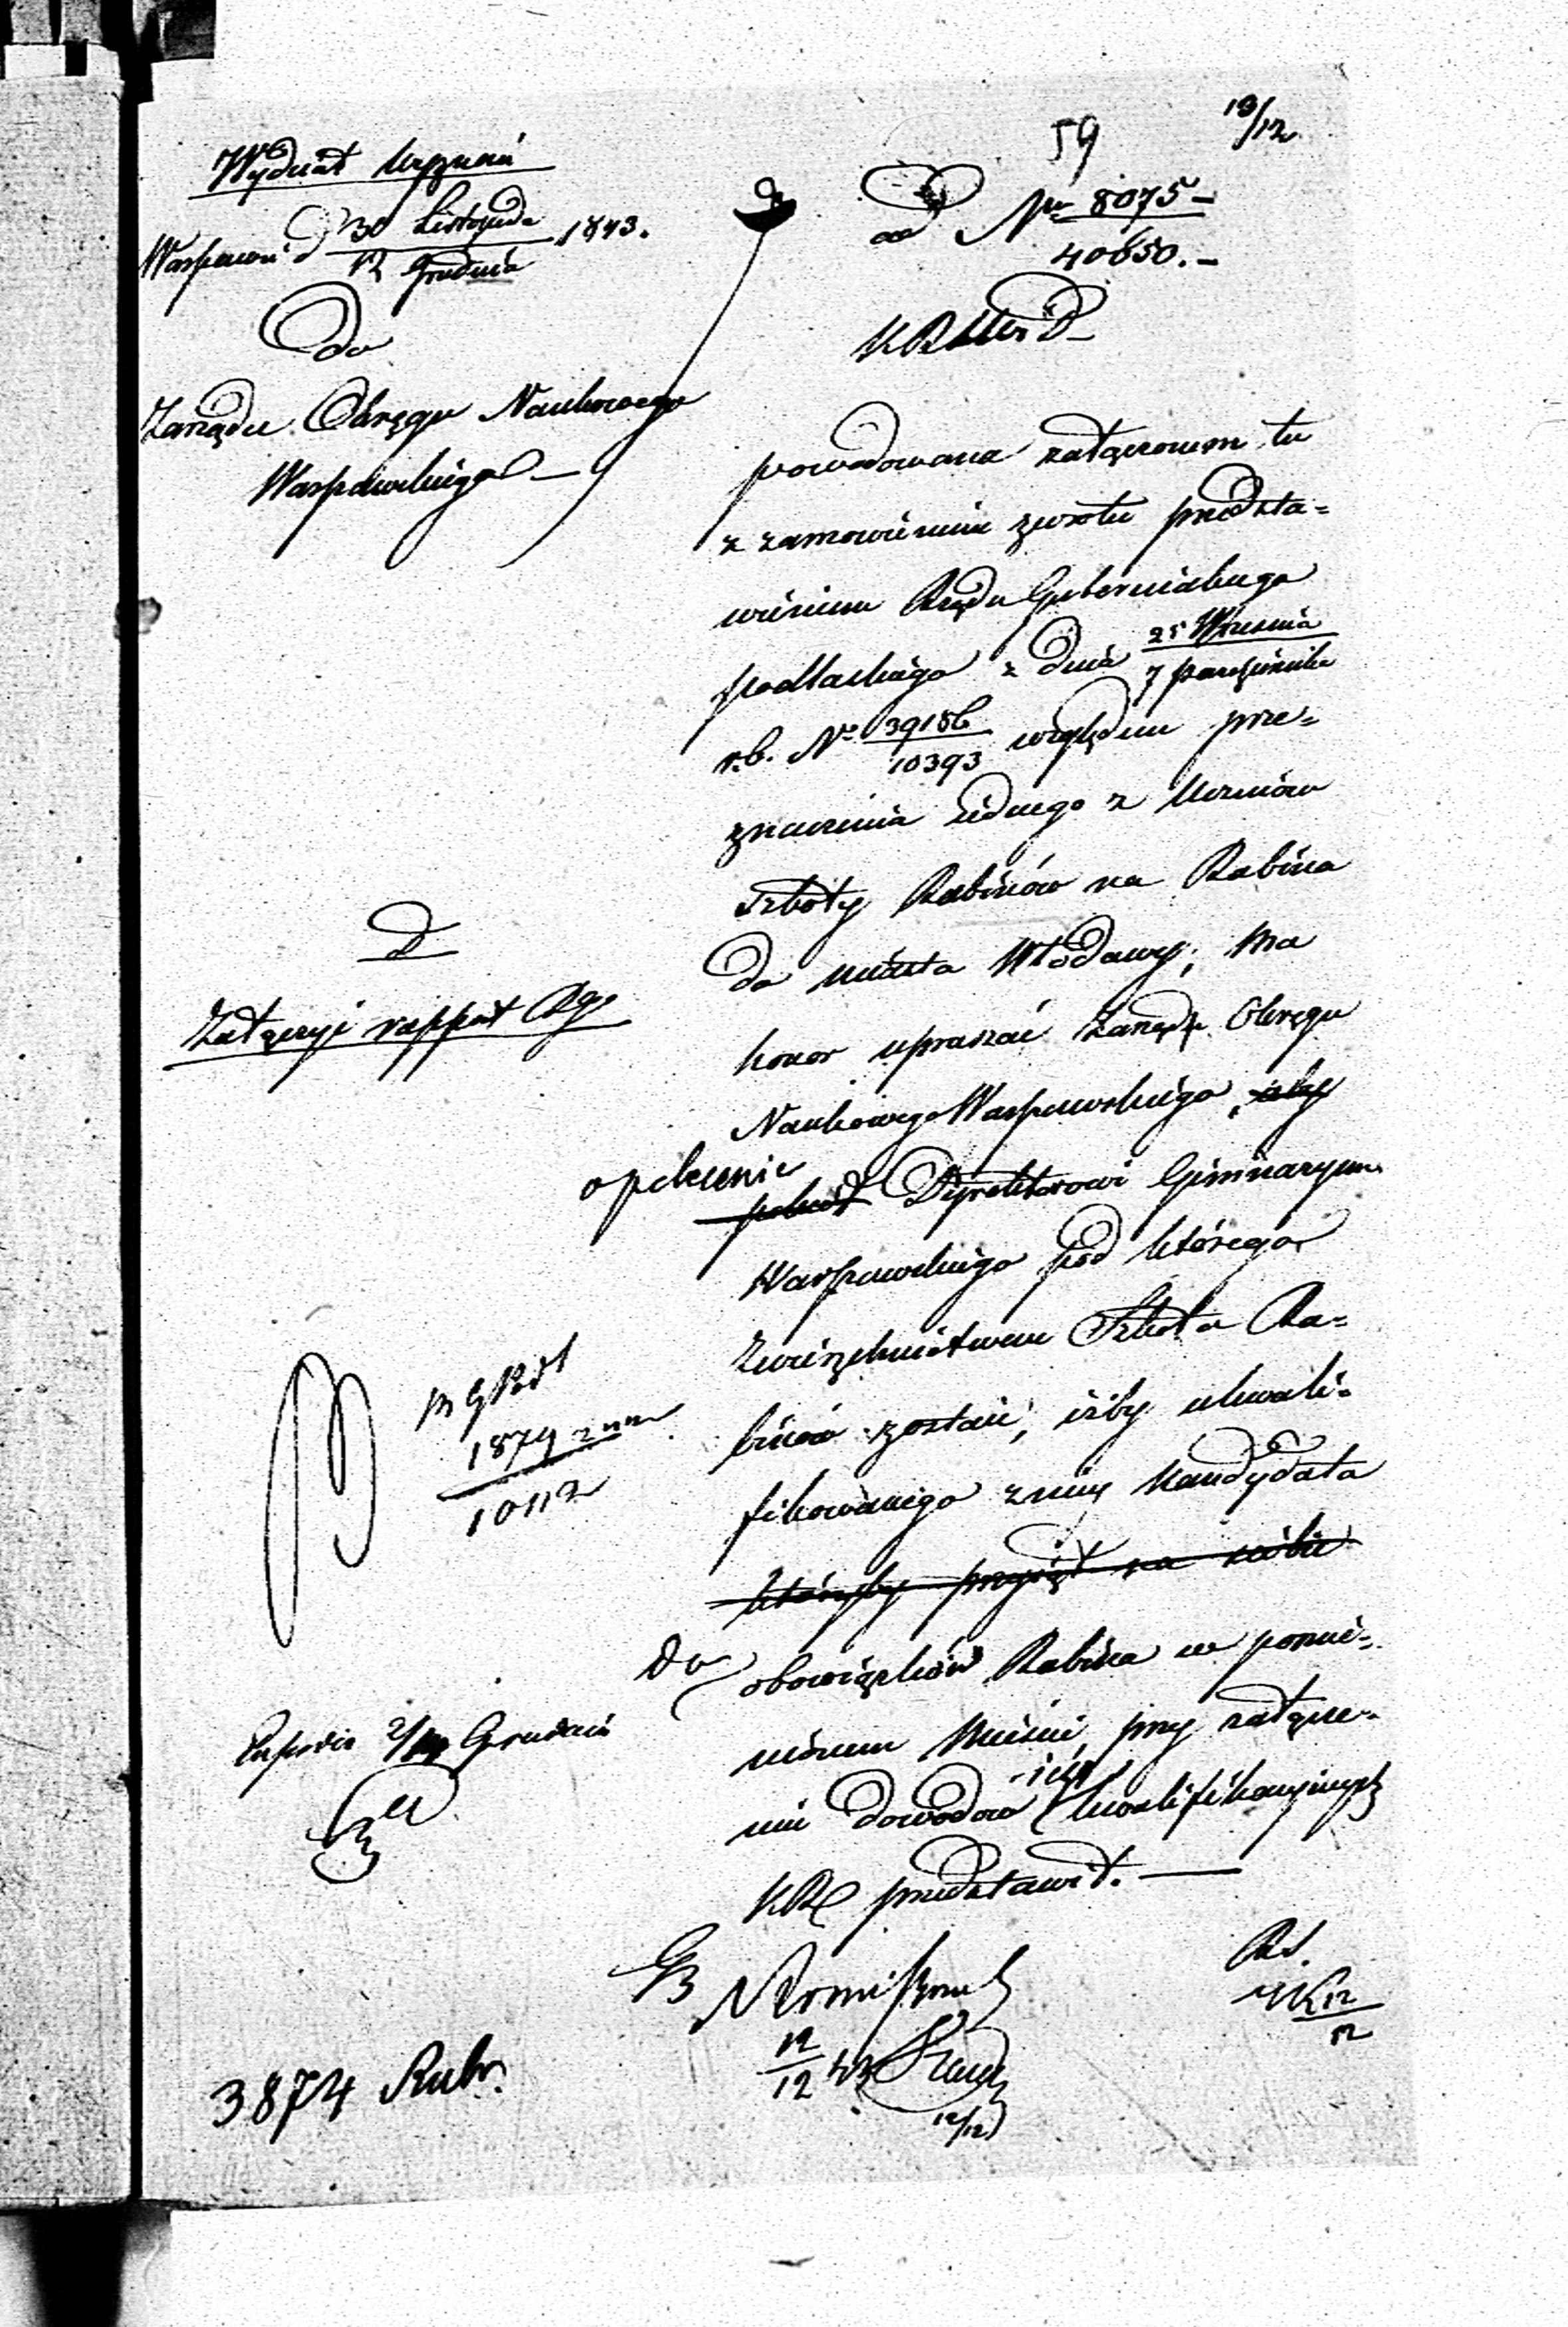 59
19/12
Wydział Wyznań
Warszawa d 30 Listopada / 12 Grudnia 1843.
Do
Zarządu Okręgu Naukowego
Warszawskiego
ad Nr 8075 / 40650.
powodowana załączonem tu
z zamówieniem zwrotu przedsta=
wieniem Rządu Gubernialnego
podlaskiego z dnia 25 Września / 7 Października
r.b. Nº 39186 / 10393 względem prze=
znaczenia jednego z Uczniów
szkoły Rabinów na Rabina
do miasta Włodawy, ma
honor upraszać Zarządu Okręgu
Naukowego Warszawskiego, aby
o polecenie
polecił Dyrektorowi Gimnazyum
Warszawskiego pod któregó
Zwierzchnictwem Szkoła Ra=
binów zostaie, iżby ukwali=
fikowanego z niey Kandydata
któryby przyjął na siebie
do obowiązków Rabina w pomie=
nionem Mieście, przy załącze=
niu dowodów iego kwalifikacyinych
KR przedstawił.
D
Załączyć rapport RG
1874
10112
2/14 Grudnia
12/12 43
12/12
12/12
3874 Rubr.